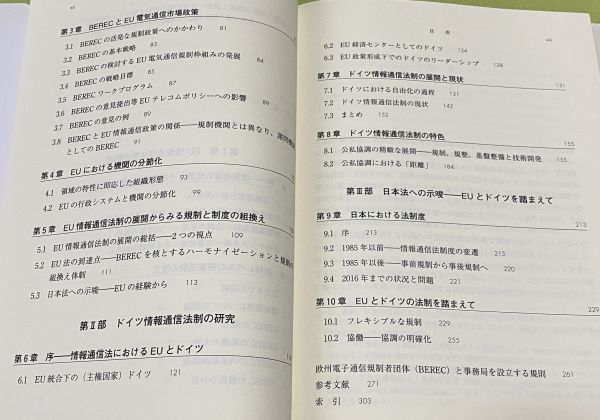 xii
第3章 BERECとEU電気通信市場政策
3.1 BERECの活発な規制政策へのかかわり 81
3.2 BERECの基本戦略 83
3.3 BERECの検討するEU電気通信規制枠組みの発展 84
3.4 BERECの戦略目標 85
3.5 BERECワークプログラム
3.6 BERECの意見提出等EUテレコムポリシーへの影響 89
3.7 BERECの意見の例 89
3.8 BERECとEU情報通信政策の関係――規制機関とは異なり、諮問機関
としてのBEREC 91
第4章 EUにおける機関の分節化
4.1 領域の特性に即応した組織形態 93
4.2 EUの行政システムと機関の分節化 99
第5章 EU情報通信法制の展開からみる規制と制度の組換え
5.1 EU情報通信法制の展開の総括――2つの視点 109
5.2 EU法の到達点――BERECを核とするハーモナイゼーションと規制の
組換え体制 111
5.3 日本法への示唆――EUの経験から 113
第Ⅱ部 ドイツ情報通信法制の研究
第6章 序――情報通信法におけるEUとドイツ
6.1 EU統合下の(主権国家)ドイツ 121
目次 xiii
6.2 EU経済センターとしてのドイツ 124
6.3 EU政策形成下でのドイツのリーダーシップ 128
第7章 ドイツ情報通信法制の展開と現状 131
7.1 ドイツにおける自由化の過程 131
7.2 ドイツ情報通信法制の現状 142
7.3 まとめ 152
第8章 ドイツ情報通信法制の特色 155
8.1 公私協調の階梯な展開――規制、規整、基盤整備と技術開発 155
8.2 公私協調における「距離」 184
第Ⅲ部 日本法への示唆――EUとドイツを踏まえて
第9章 日本における法制度 213
9.1 序 213
9.2 1985年以前――情報通信法制度の変遷 215
9.3 1985年以後――事前規制から事後規制へ 220
9.4 2016年までの状況と問題 221
第10章 EUとドイツの法制を踏まえて 229
10.1 フレキシブルな規制 229
10.2 協働――協調の明確化 255
欧州電子通信規制者団体(BEREC)と事務局を設立する規則 261
参考文献 271
索引 303